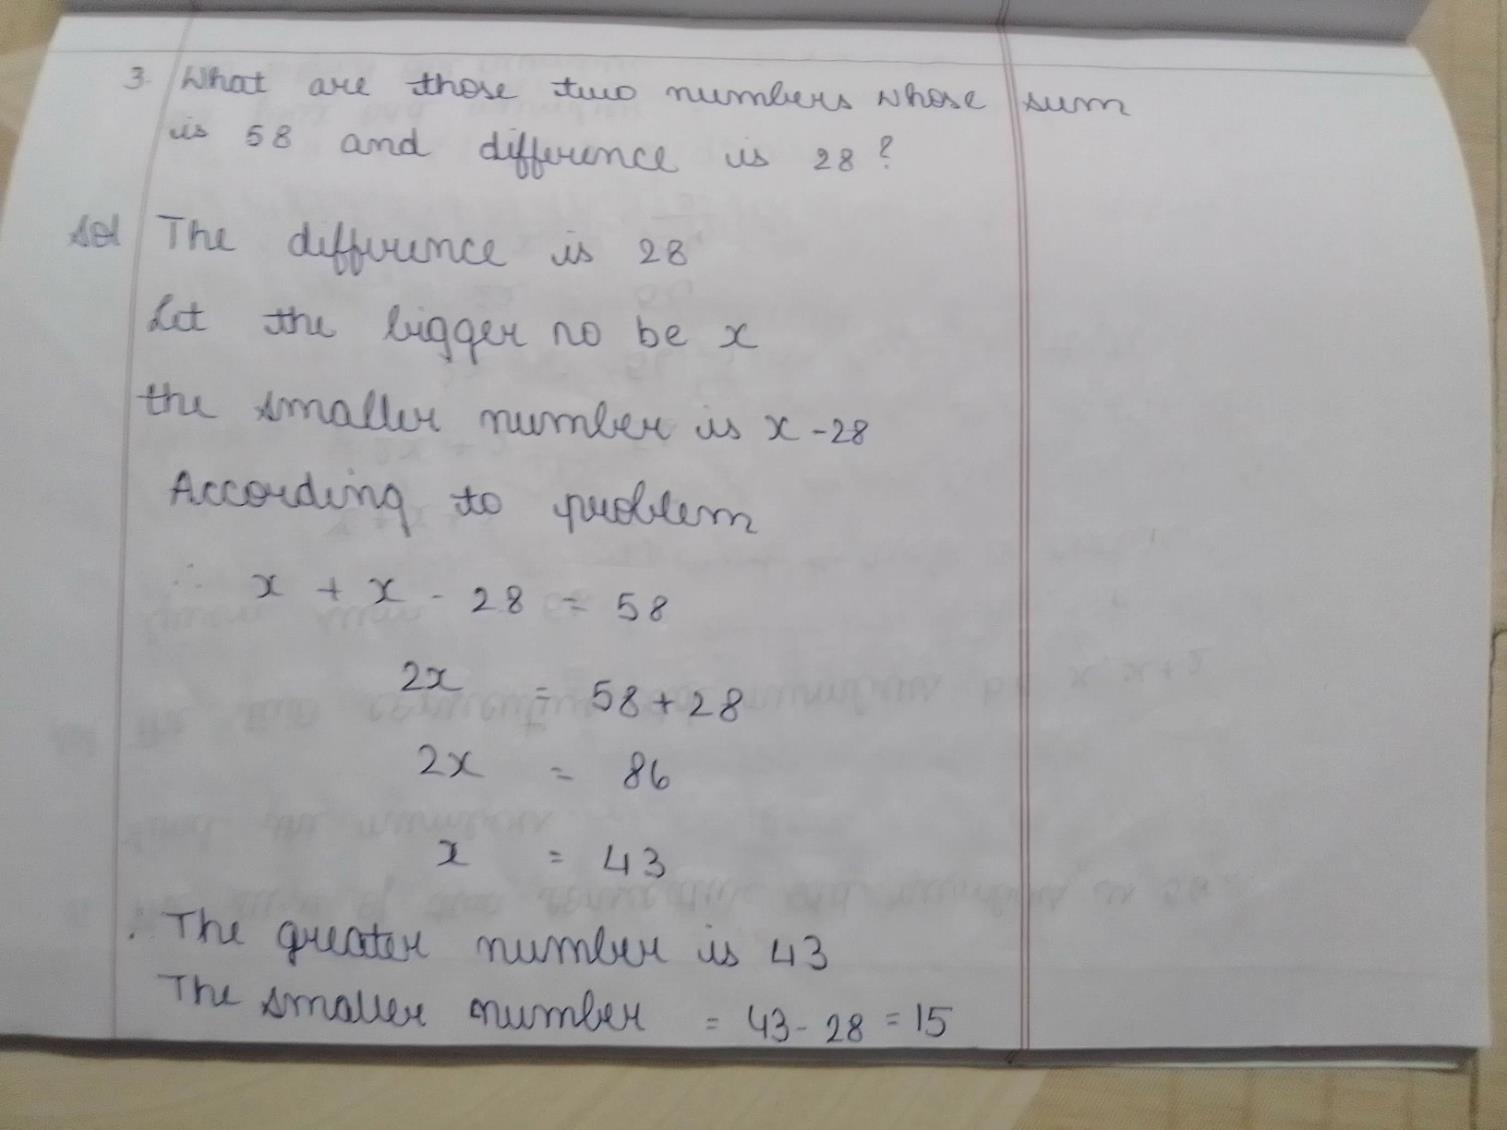 3. What are those two numbers whose sum
is 58 and difference is 28?
Sol The difference is 28
Let the bigger no be x
the smaller number is x - 28
According to problem
∴ x + x - 28 = 58
2x = 58 + 28
2x = 86
x = 43
∴ The greater number is 43
The smaller number = 43 - 28 = 15